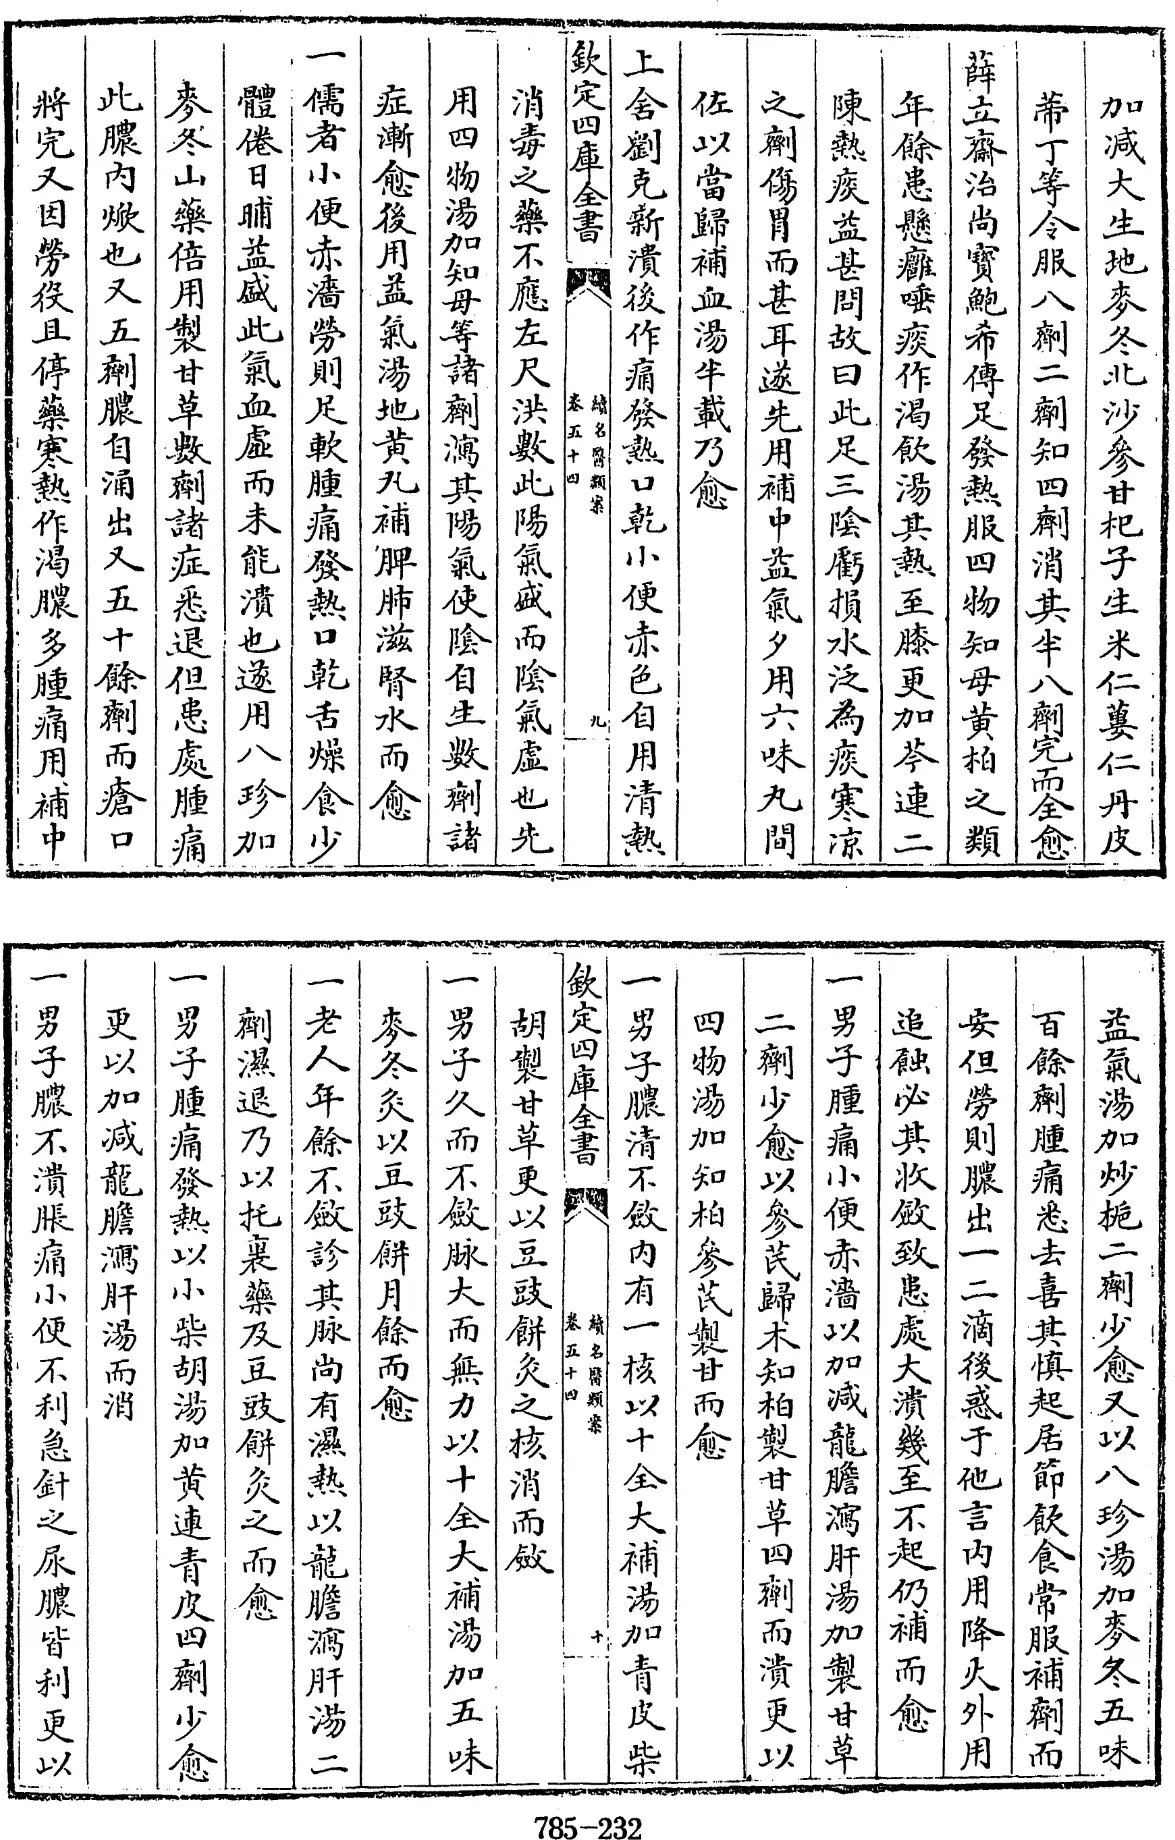 加减大生地麥冬北沙參甘杞子生米仁蔞仁丹皮
蒂丁等令服八劑二劑知四劑消其半八劑完而全愈
薛立齋治尚寶鮑希傳足發熱服四物知母黄柏之類
年餘患懸癰唾痰作渴飲湯其熱至膝更加芩連二
陳熱痰益甚問故曰此足三陰虧損水泛為痰寒凉
之劑傷胃而甚耳遂先用補中益氣夕用六味丸間
佐以當歸補血湯半載乃愈
上舍劉克新潰後作痛發熱口乾小便赤色自用清熱
欽定四庫全書
續名醫類案
卷五十四
九
消毒之藥不應左尺洪數此陽氣盛而陰氣虚也先
用四物湯加知母等諸劑瀉其陽氣使陰自生數劑諸
症漸愈後用益氣湯地黄丸補脾肺滋腎水而愈
一儒者小便赤濇勞則足軟腫痛發熱口乾舌燥食少
體倦日晡益盛此氣血虛而未能潰也遂用八珍加
麥冬山藥倍用製甘草數劑諸症悉退但患處腫痛
此膿内焮也又五劑膿自涌出又五十餘劑而瘡口
將完又因勞役且停藥寒熱作渴膿多腫痛用補中
益氣湯加炒梔二劑少愈又以八珍湯加麥冬五味
百餘劑腫痛悉去喜其慎起居節飲食常服補劑而
安但勞則膿出一二滴後惑于他言内用降火外用
追蝕必其收斂致患處大潰幾至不起仍補而愈
一男子腫痛小便赤濇以加減龍膽瀉肝湯加製甘草
二劑少愈以參芪歸术知柏製甘草四劑而潰更以
四物湯加知柏參芪製甘而愈
一男子膿清不斂内有一核以十全大補湯加青皮柴
欽定四庫全書
續名醫類案
卷五十四
十
胡製甘草更以豆豉餅灸之核消而斂
一男子久而不斂脉大而無力以十全大補湯加五味
麥冬灸以豆豉餅月餘而愈
一老人年餘不斂診其脉尚有濕熱以龍膽瀉肝湯二
劑濕退乃以托裏藥及豆豉餅灸之而愈
一男子腫痛發熱以小柴胡湯加黄連青皮四劑少愈
更以加减龍膽瀉肝湯而消
一男子膿不潰脹痛小便不利急針之尿膿皆利更以
785-232